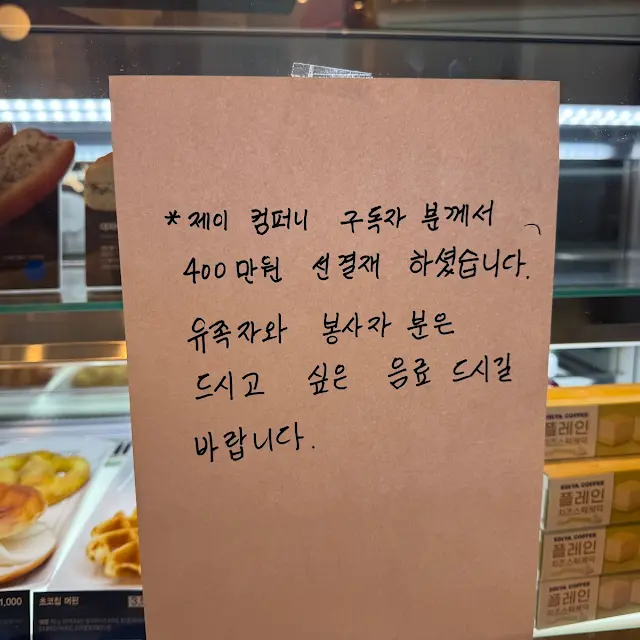 * 제이 컴퍼니 구독자 분께서
400만원 선결재 하셨습니다.
유족자와 봉사자 분은
드시고 싶은 음료 드시길
바랍니다.
플레인
치즈스틱케익
EDIYA COFFEE
플레인
치즈스틱케익
EDIYA COFFEE
플레인
EDIYA COFFEE
플레인
1,000
초코칩 머핀